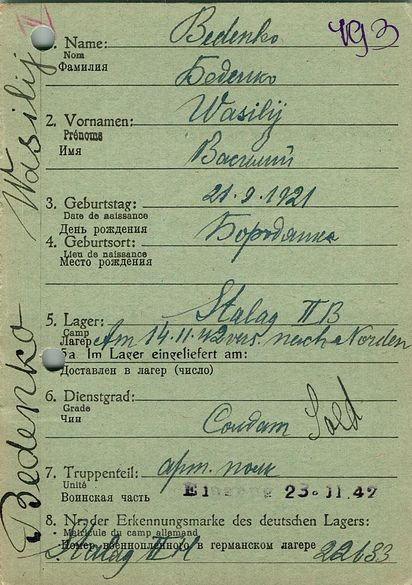 Z
Bedenko
193
1. Name:
Nom
Фамилия
Беденко
Wasilij
2. Vornamen:
Prénoms
Имя
Василий
3. Geburtstag: 21.9.1921
Date de naissance
День рождения
4. Geburtsort: Бородянка
Lieu de naissance
Место рождения
5. Lager: Stalag II B
Camp
Лагерь Am 14.11.42 vers. nach Norden
5a. Im Lager eingeliefert am:
Доставлен в лагер (число)
6. Dienstgrad:
Grade
Чин
Солдат Sold
7. Truppenteil: арт. полк
Unité
Воинская часть
Eingang 23. 11. 42
8. Nr. der Erkennungsmarke des deutschen Lagers:
Matricule du camp allemand
Номер военнопленного в германском лагере
Stalag II 22683
Bedenko Wasilij